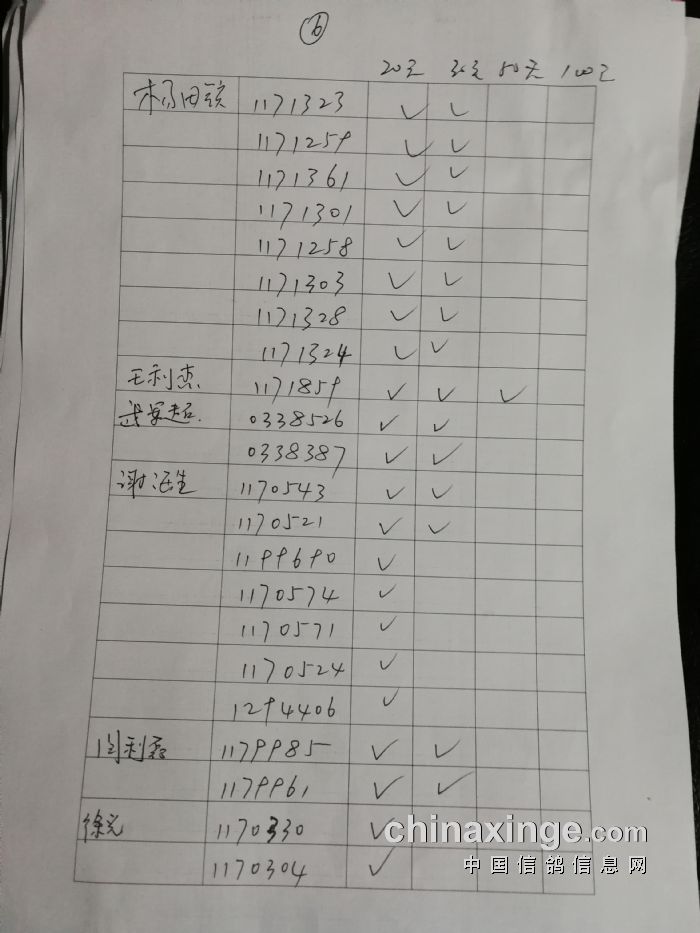 6
20元 30元 50元 100元
1171323 ✓ ✓
1171259 ✓ ✓
1171361 ✓ ✓
1171301 ✓ ✓
1171258 ✓ ✓
1171303 ✓ ✓
1171328 ✓ ✓
1171324 ✓ ✓
王利杰 1171859 ✓ ✓ ✓
0338526 ✓ ✓
0338387 ✓ ✓
1170543 ✓ ✓
1170521 ✓ ✓
1199690 ✓
1170574 ✓
1170571 ✓
1170524 ✓
1294406 ✓
闫利 1179985 ✓ ✓
1179961 ✓ ✓
徐 1170330 ✓
chinaxinge.com
中国信鸽信息网
1170304 ✓